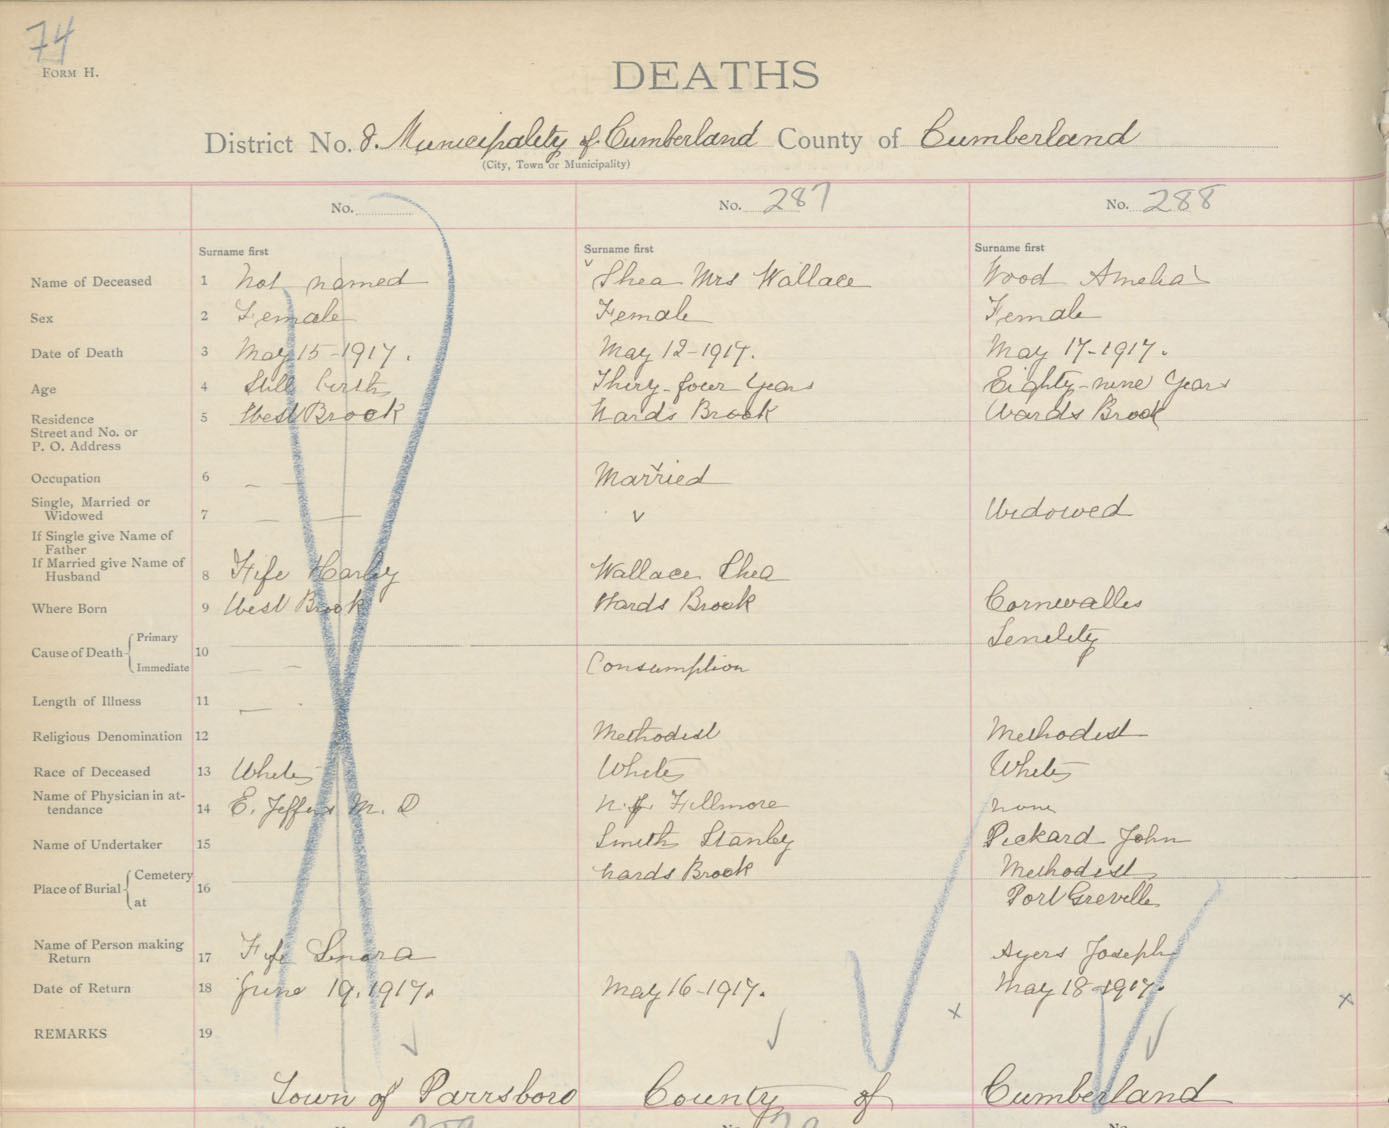 74
FORM H.
DEATHS
District No. 8. Municipality of Cumberland County of Cumberland
(City, Town or Municipality)
No. No. 287 No. 288
Surname first Surname first Surname first
Name of Deceased 1 Not named Shea Mrs Wallace Wood Amelia
Sex 2 Female Female Female
Date of Death 3 May 15-1917. May 12-1917. May 17-1917.
Age 4 Still birth Thiry-four Years Eighty-nine Years
Residence Street and No. or P. O. Address 5 West Brook Wards Brook Wards Brook
Occupation 6 — — Married
Single, Married or Widowed 7 — — v Widowed
If Single give Name of Father
If Married give Name of Husband 8 Fife Harley Wallace Shea
Where Born 9 West Brook Wards Brook Cornwallis
Cause of Death Primary 10 Senility
Immediate — — Consumption
Length of Illness 11 —
Religious Denomination 12 Methodist Methodist
Race of Deceased 13 White White White
Name of Physician in attendance 14 E. Jeffers M. D Fillmore none
Name of Undertaker 15 Smith Stanley Pickard John
Place of Burial Cemetery 16 Wards Brook Methodist
at Port Greville
Name of Person making Return 17 Fife Senora Ayers Joseph
Date of Return 18 June 19, 1917. May 16-1917. May 18-1917.
REMARKS 19
Town of Parrsboro County of Cumberland
No. No.